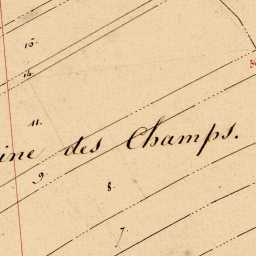 15.
14.
11.
ine des Champs.
9
8.
7